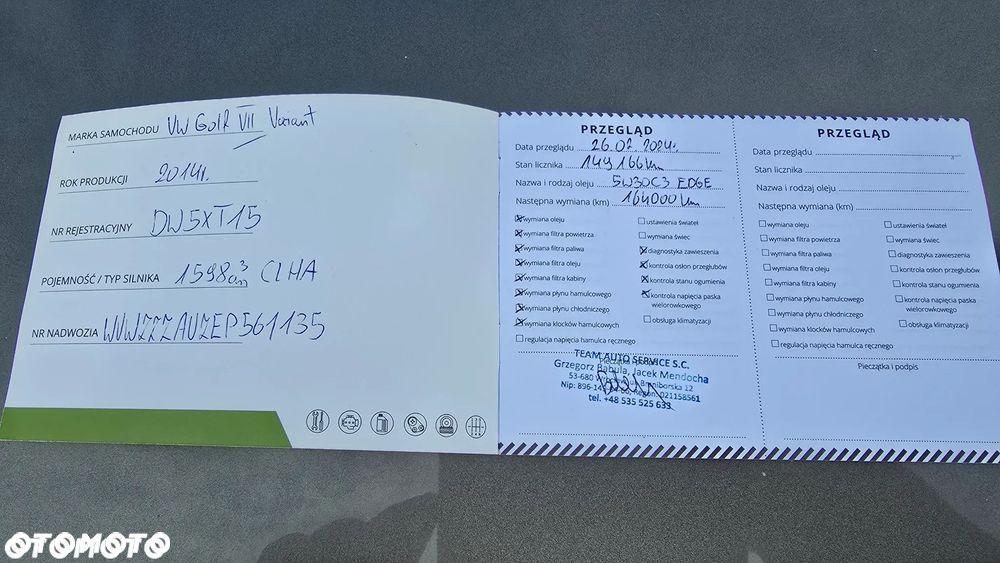 MARKA SAMOCHODU VW Golf VII Variant
ROK PRODUKCJI 2014r.
NR REJESTRACYJNY DW5XT15
POJEMNOŚĆ / TYP SILNIKA 1598cm3 CLHA
NR NADWOZIA WVWZZZAUZEP561135
PRZEGLĄD
Data przeglądu 26.07.2024r.
Stan licznika 149166km
Nazwa i rodzaj oleju 5W30C3 EDGE
Następna wymiana (km) 164000km
wymiana oleju
wymiana filtra powietrza
wymiana filtra paliwa
wymiana filtra oleju
wymiana filtra kabiny
wymiana płynu hamulcowego
wymiana płynu chłodniczego
wymiana klocków hamulcowych
regulacja napięcia hamulca ręcznego
ustawienia świateł
wymiana świec
diagnostyka zawieszenia
kontrola osłon przegubów
kontrola stanu ogumienia
kontrola napięcia paska
wielorowkowego
obsługa klimatyzacji
Pieczątka i podpis
TEAM AUTO SERVICE S.C.
Grzegorz Babula, Jacek Mendocha
53-680 Braniborska 12
Nip: 896-14 Regon: 021158561
tel. +48 535 525 633
PRZEGLĄD
Data przeglądu
Stan licznika
Nazwa i rodzaj oleju
Następna wymiana (km)
wymiana oleju
wymiana filtra powietrza
wymiana filtra paliwa
wymiana filtra oleju
wymiana filtra kabiny
wymiana płynu hamulcowego
wymiana płynu chłodniczego
wymiana klocków hamulcowych
regulacja napięcia hamulca ręcznego
ustawienia świateł
wymiana świec
diagnostyka zawieszenia
kontrola osłon przegubów
kontrola stanu ogumienia
kontrola napięcia paska
wielorowkowego
obsługa klimatyzacji
Pieczątka i podpis
OTOMOTO